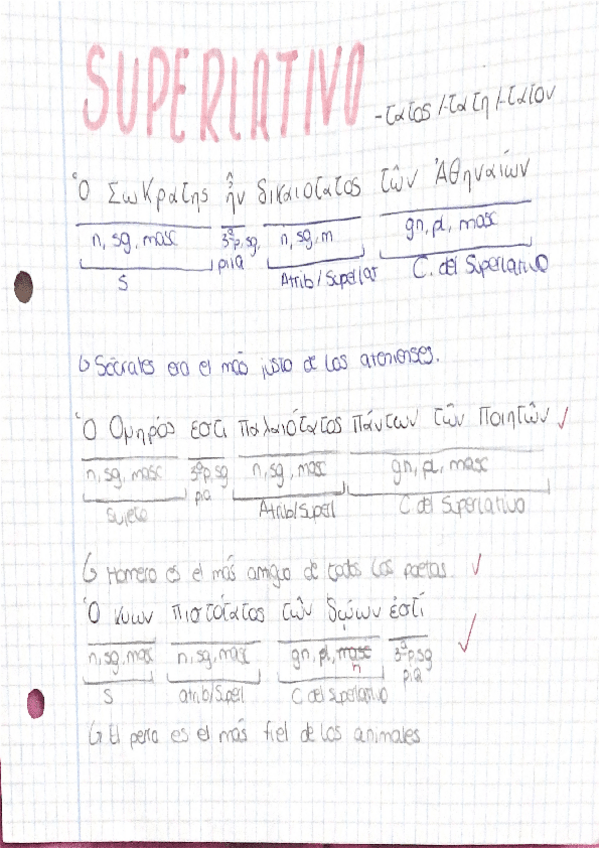 SUPERLATIVO -τατος/-τατη/-τατον
Ὁ Σωκρατης ἦν δικαιοτατος τῶν Ἀθηναίων
n, sg, masc 3ªp, sg, n, sg, m gn, pl, masc
p.i.a
S Atrib/Superlat C. del Superlativo
↳ Sócrates era el más justo de los atenienses.
Ὁ Ομηρός εστι παλαιότατος πάντων τῶν ποιητῶν ✓
n, sg, masc 3ªp, sg n, sg, masc gn, pl, masc
p.i.a
Sujeto Atrib/Superl C del Superlativo
↳ Homero es el más amigo de tods los poetas. ✓
Ὁ κυων πιστότατος τῶν δῳων ἐστί
n, sg, masc n, sg, masc gn, pl, masc 3ªp, sg ✓
n p.i.a
S atrib/Superl C del superlativo
↳ El perro es el más fiel de los animales